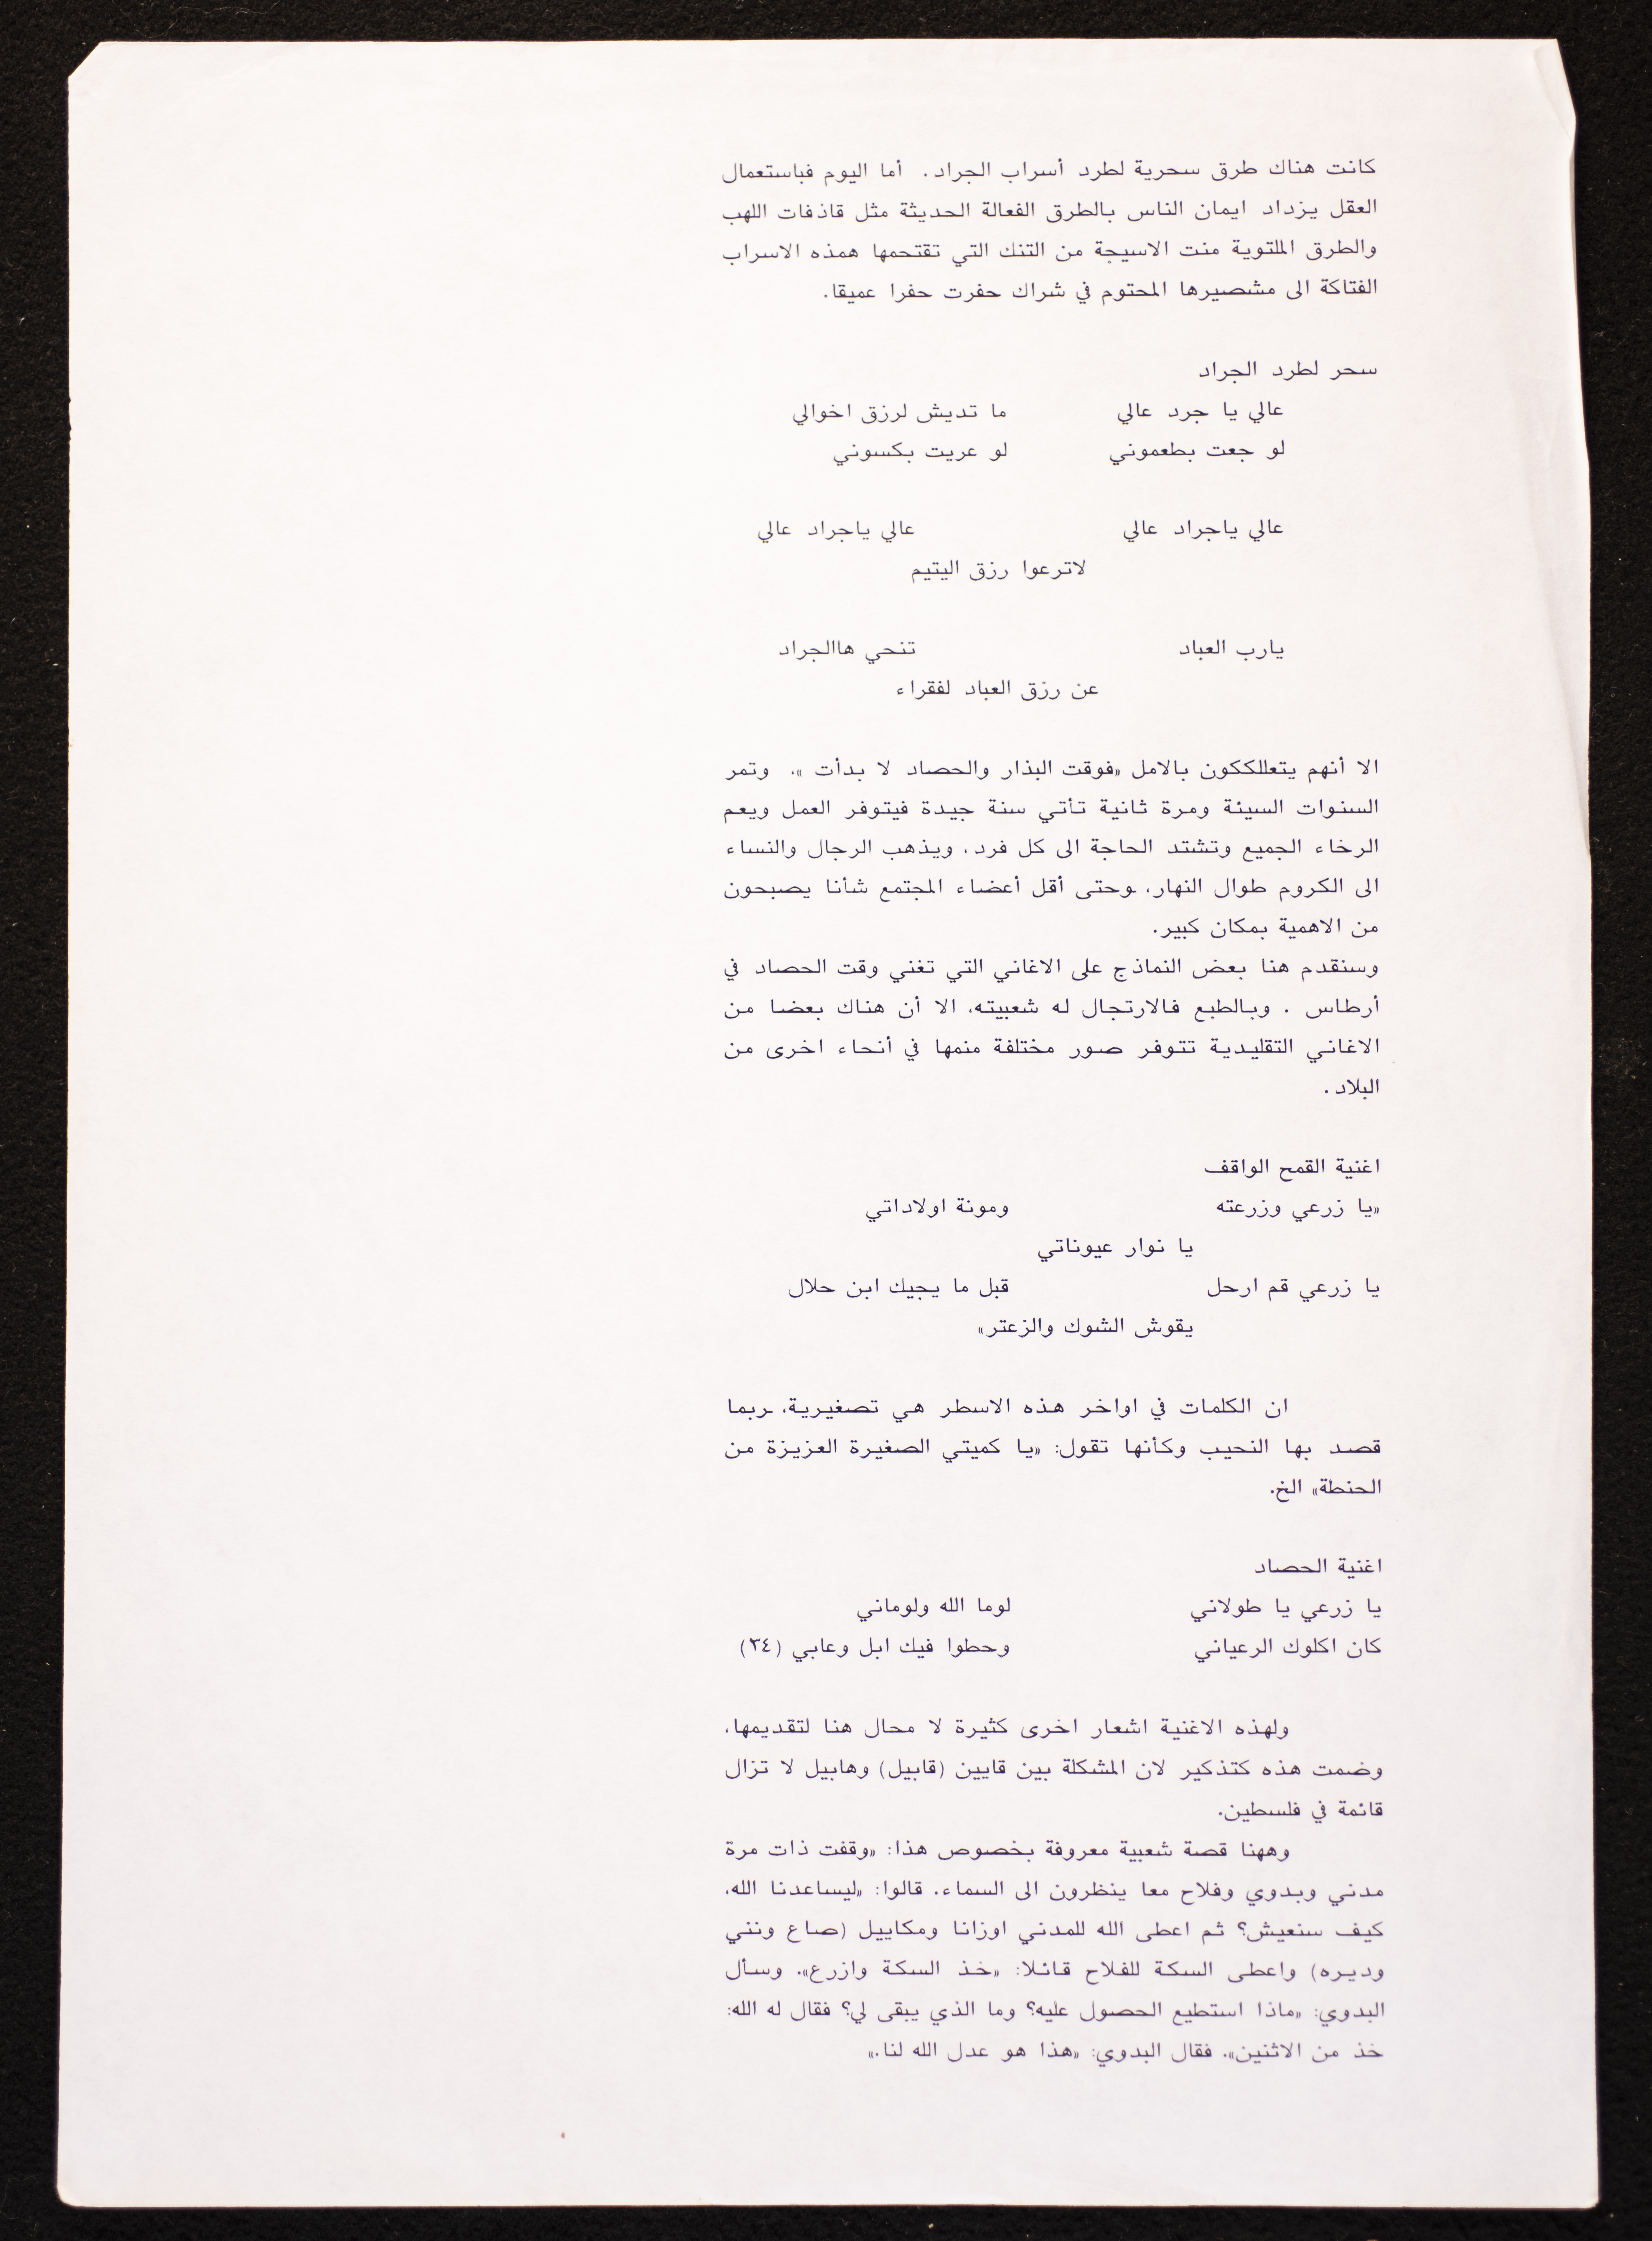 كانت هناك طرق سحرية لطرد أسراب الجراد. أما اليوم فباستعمال
العقل يزداد ايمان الناس بالطرق الفعالة الحديثة مثل قاذفات اللهب
والطرق الملتوية منت الاسيجة من التنك التي تقتحمها همذه الاسراب
الفتاكة الى مشصيرها المحتوم في شراك حفرت حفرا عميقا.
سحر لطرد الجراد
عالي يا جرد عالي ما تديش لرزق اخوالي
لو جعت بطعموني لو عريت بكسوني
عالي ياجراد عالي عالي ياجراد عالي
لاترعوا رزق اليتيم
يارب العباد تنحي هاالجراد
عن رزق العباد لفقراء
الا أنهم يتعللككون بالامل «فوقت البذار والحصاد لا بدأت »، وتمر
السنوات السيئة ومرة ثانية تأتي سنة جيدة فيتوفر العمل ويعم
الرخاء الجميع وتشتد الحاجة الى كل فرد، ويذهب الرجال والنساء
الى الكروم طوال النهار، وحتى أقل أعضاء المجتمع شأنا يصبحون
من الاهمية بمكان كبير.
وسنقدم هنا بعض النماذج على الاغاني التي تغني وقت الحصاد في
أرطاس . وبالطبع فالارتجال له شعبيته، الا أن هناك بعضا من
الاغاني التقليدية تتوفر صور مختلفة منمها في أنحاء اخرى من
البلاد.
اغنية القمح الواقف
«يا زرعي وزرعته ومونة اولاداتي
يا نوار عيوناتي
يا زرعي قم ارحل قبل ما يجيك ابن حلال
يقوش الشوك والزعتر»
ان الكلمات في اواخر هذه الاسطر هي تصغيرية، ربما
قصد بها النحيب وكأنها تقول: «يا كميتي الصغيرة العزيزة من
الحنطة» الخ.
اغنية الحصاد
يا زرعي يا طولاني لوما الله ولوماني
كان اكلوك الرعياني وحطوا فيك ابل وعابي (٣٤)
ولهذه الاغنية اشعار اخرى كثيرة لا محال هنا لتقديمها،
وضمت هذه كتذكير لان المشكلة بين قايين (قابيل) وهابيل لا تزال
قائمة في فلسطين.
وههنا قصة شعبية معروفة بخصوص هذا: «وقفت ذات مرة
مدني وبدوي وفلاح معا ينظرون الى السماء. قالوا: «ليساعدنا الله،
كيف سنعيش؟ ثم اعطى الله للمدني اوزانا ومكاييل (صاع ونني
وديره) واعطى السكة للفلاح قائلا: «خذ السكة وازرع». وسأل
البدوي: «ماذا استطيع الحصول عليه؟ وما الذي يبقى لي؟ فقال له الله:
خذ من الاثنين». فقال البدوي: «هذا هو عدل الله لنا.»